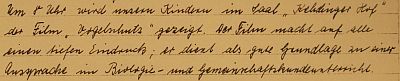 Um 8 Uhr wird unseren Kindern im Saal „Kehdinger Hof"
der Film „Vogelschutz" gezeigt. Der Film macht auf alle
einen tiefen Eindruck; er dient als gute Grundlage zu einer
Aussprache im Biologie- und Gemeinschaftskundeunterricht.